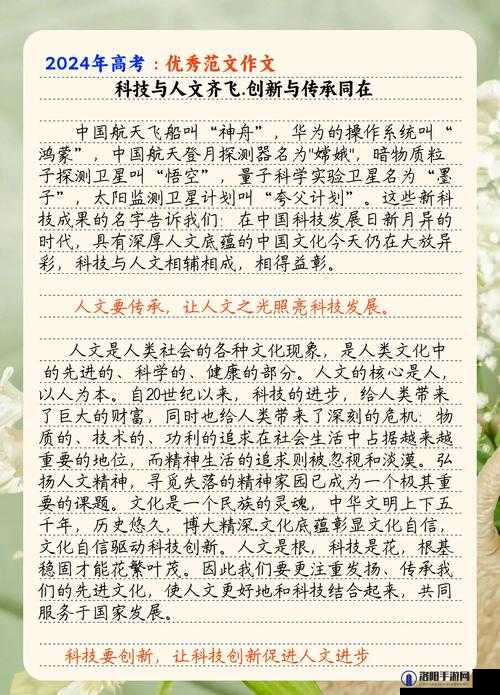 2024年高考：优秀范文作文
科技与人文齐飞.创新与传承同在
中国航天飞船叫“神舟”，华为的操作系统叫“
鸿蒙”，中国航天登月探测器名为"嫦娥"，暗物质粒
子探测卫星叫“悟空”，量子科学实验卫星名为“墨
子”，太阳监测卫星计划叫“夸父计划”。这些新科
技成果的名字告诉我们：在中国科技发展日新月异的
时代，具有深厚人文底蕴的中国文化今天仍在大放异
彩，科技与人文相辅相成，相得益彰。
人文要传承，让人文之光照亮科技发展。
人文是人类社会的各种文化现象，是人类文化中
的先进的、科学的、健康的部分。人文的核心是人，
以人为本。自20世纪以来，科技的进步，给人类带来
了巨大的财富，同时也给人类带来了深刻的危机：物
质的、技术的、功利的追求在社会生活中占据越来越
重要的地位，而精神生活的追求则被忽视和淡漠。弘
扬人文精神，寻觅失落的精神家园已成为一个极其重
要的课题。文化是一个民族的灵魂，中华文明上下五
千年，历史悠久，博大精深.文化底蕴彰显文化自信，
文化自信驱动科技创新。人文是根，科技是花，根基
稳固才能花繁叶茂。因此我们要更注重发扬、传承我
们的先进文化，使人文更好地和科技结合起来，共同
服务于国家发展。
科技要创新，让科技创新促进人文进步
洛阳手游网